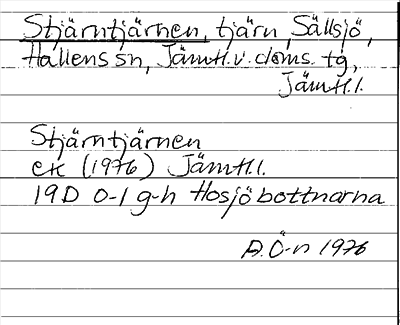 Stjärntjärnen, tjärn, Sällsjö,
Hallens sn, Jämtl. v. doms. tg,
Jämtl. l.
Stjärntjärnen
ek (1976) Jämtl. l.
19D 0-1 g-h Hosjöbottnarna
A. Ö-n 1976